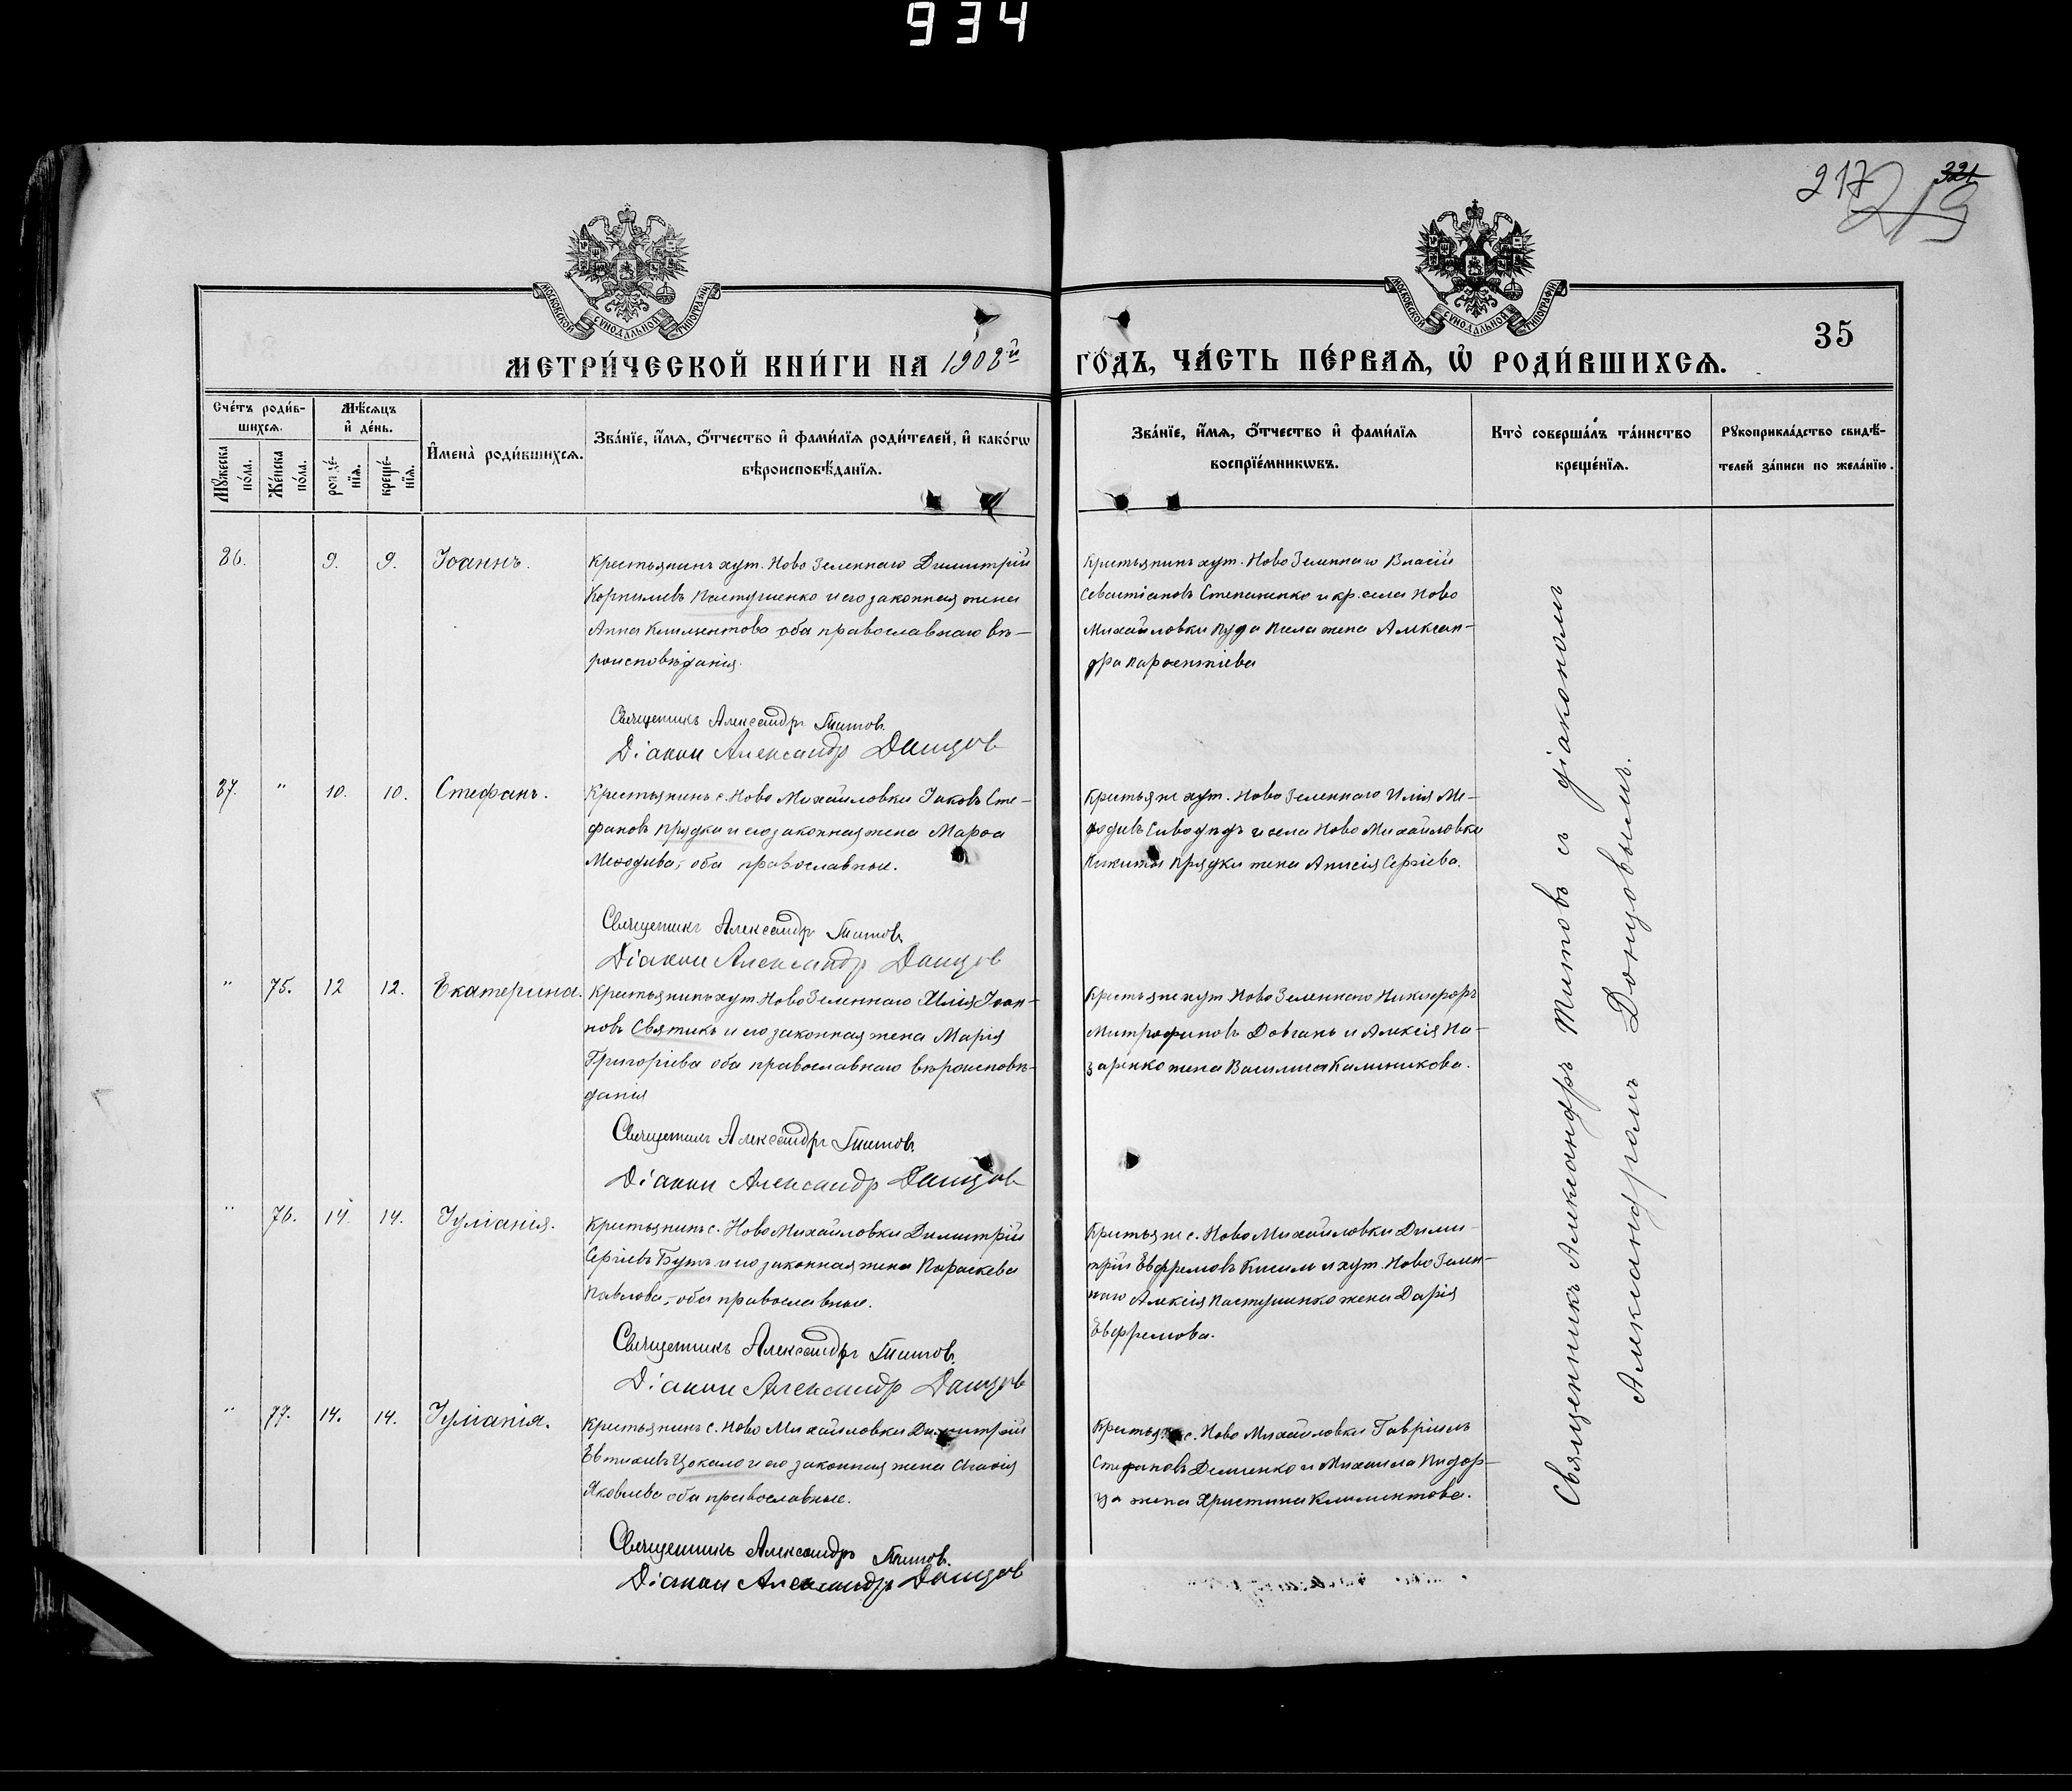 934
217
219
321
МОСКОВСКОЙ СѴНОДАЛЬНОЙ ТИПОГРАФІИ
МОСКОВСКОЙ СѴНОДАЛЬНОЙ ТИПОГРАФІИ
35
МЕТРИ́ЧЕСКОЙ КНИ́ГИ НА 1908й ГО́ДЪ, ЧА́СТЬ ПЕ́РВАѦ, Ѡ҆ РОДИ́ВШИХСѦ.
Сче́тъ роди́в-
шихсѧ.
Мꙋ́жеска по́ла.
Же́нска по́ла.
Мѣ́сѧцъ и҆ де́нь.
рожде́-нїѧ.
креще́-нїѧ.
И҆мена̀ роди́вшихсѧ.
Зва́нїе, и҆́мѧ, ѻ҆́тчество и҆ фами́лїѧ роди́телей, и҆ како́гѡ
вѣроисповѣ́данїѧ.
Зва́нїе, и҆́мѧ, ѻ҆́тчество и҆ фами́лїѧ
воспрїе́мникѡвъ.
Кто̀ соверша́лъ та́инство
креще́нїѧ.
Рꙋкоприкла́дство свидѣ́-
телей за́писи по жела́нїю.
86. 9. 9. Іоаннъ.
Крестьянинъ хут. Ново Зеленнаго Димитрій
Корнилiевъ Пастушенко и его законная жена
Анна Климентова оба православнаго вѣ-
роисповѣданія.
Священникъ Александръ Титовъ.
Діаконъ Александръ Донцовъ
Крестьянинъ хут. Ново Зеленнаго Власій
Севастіановъ Степаненко и кр. села Ново
Михайловки жена Алексан-
дра Парѳентіева
87. " 10. 10. Стефанъ.
Крестьянинъ с. Ново Михайловки Іаковъ Сте-
фановъ Прядка и его законная жена Марѳа
Меѳодіева, оба православные.
Священникъ Александръ Титовъ.
Діаконъ Александръ Донцовъ
Крестьяне хут. Ново Зеленнаго Илія Ме-
ѳодіевъ и села Ново Михайловки
Никиты Прядки жена Анисія Сергіева.
" 75. 12 12. Екатерина.
Крестьянинъ хут. Ново Зеленнаго Илія Іоан-
новъ Святикъ и его законная жена Марія
Григоріева оба православнаго вѣроисповѣ-
данія
Священникъ Александръ Титовъ.
Діаконъ Александръ Донцовъ
Крестьяне хут. Ново Зеленнаго Никифоръ
Митрофановъ Довгань и Алексія На-
заренко жена Василиса Калиникова.
" 76. 14. 14. Іуліанія.
Крестьянинъ с. Ново Михайловки Димитрій
Сергіевъ Бутъ и его законная жена Параскева
Павлова, оба православные.
Священникъ Александръ Титовъ.
Діаконъ Александръ Донцовъ
Крестьяне с. Ново Михайловки Дими-
трій Евфремовъ Кисиль и хут. Ново Зелен-
наго Алексія Пастушенко жена Дарія
Евфремова.
" 77. 14. 14. Іуліанія.
Крестьянинъ с. Ново Михайловки Димитрій
Евтихіевъ Цокало и его законная жена Агаѳія
Яковлева оба православные.
Священникъ Александръ Титовъ.
Діаконъ Александръ Донцовъ
Крестьяне с. Ново Михайловки Гавріилъ
Стефановъ Демченко и Михаила Пидор-
ца жена Христина Климентова.
Священникъ Александръ Титовъ съ діакономъ
Александромъ Донцовымъ.